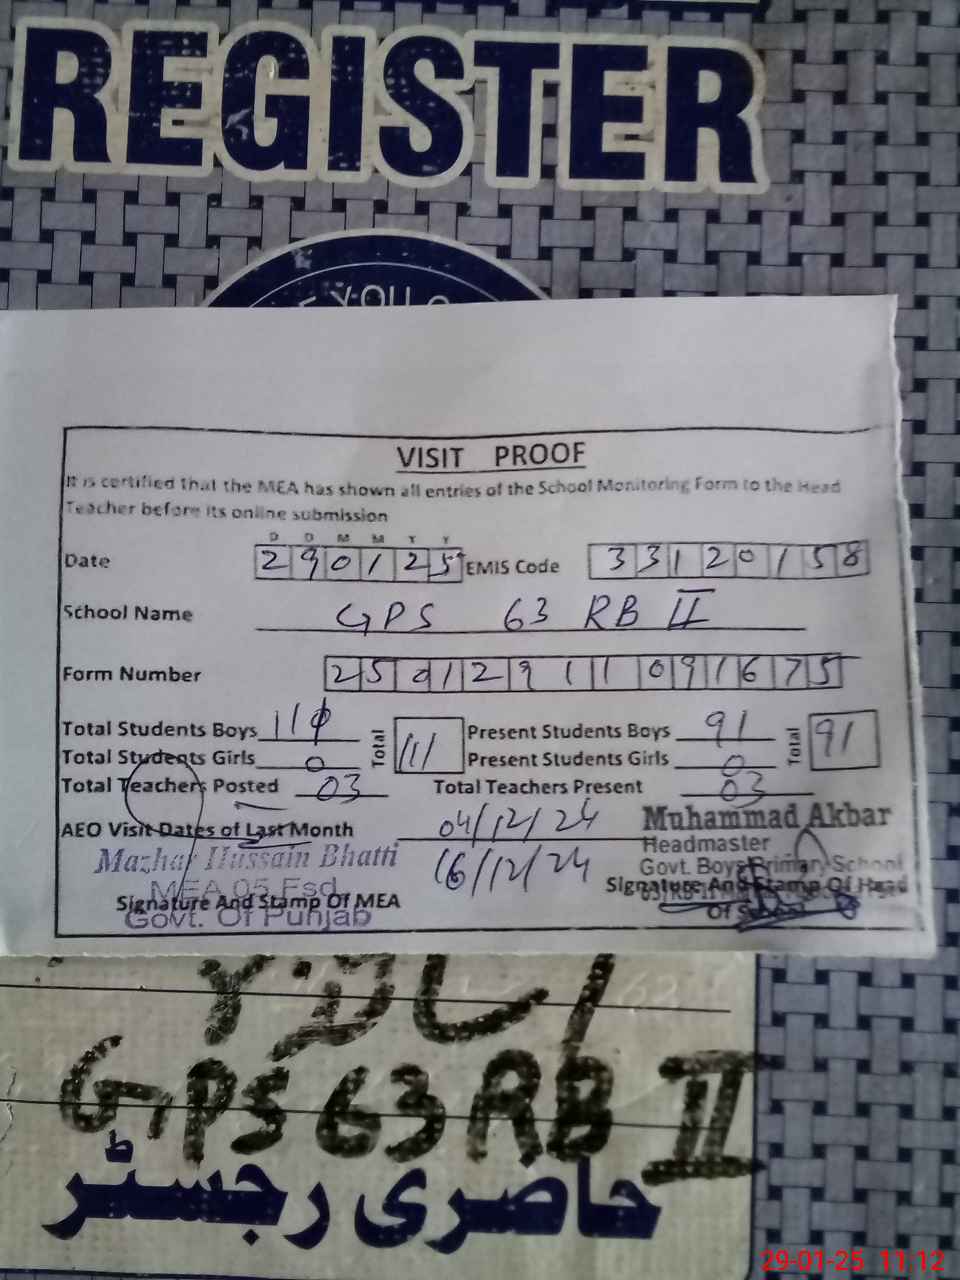 REGISTER
YOU
VISIT PROOF
It is certified that the MEA has shown all entries of the School Monitoring Form to the Head
Teacher before its online submission
D D M M Y Y
Date 290125 EMIS Code 33120158
School Name GPS 63 RB II
Form Number 25012911091675
Total Students Boys 11 Total 111 Present Students Boys 91 Total 91
Total Students Girls 0 Present Students Girls 0
Total Teachers Posted 03 Total Teachers Present 03
AEO Visit Dates of Last Month 04/12/24
16/12/24
Muhammad Akbar
Headmaster
Govt. Boys Primary School
63/RB-II
Mazhar Hussain Bhatti
MEA 05 Fsd
Govt. Of Punjab
Signature And Stamp Of MEA
Signature And Stamp Of Head
Of School
GPS 63 RB II
حاضری رجسٹر
29-01-25 11:12